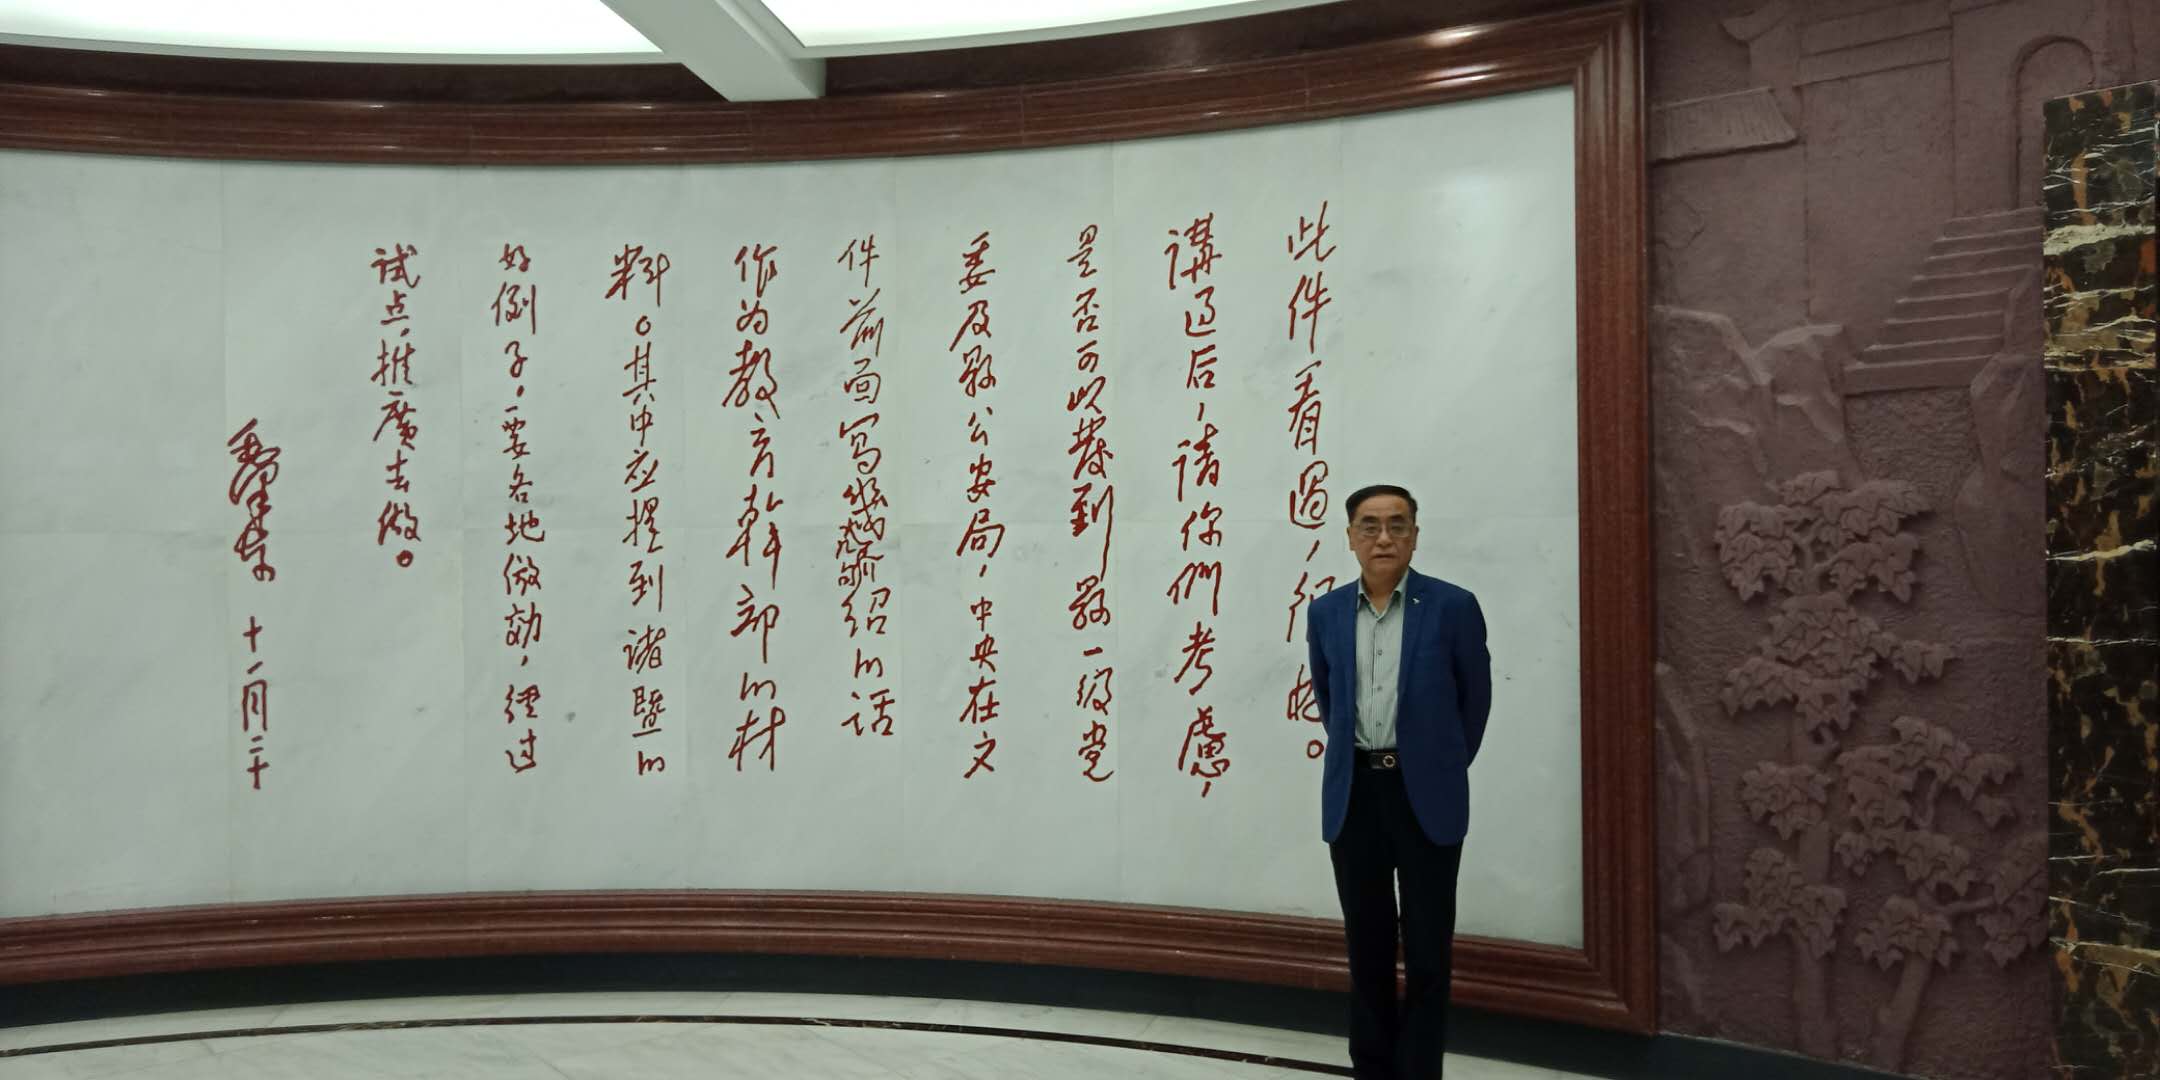 此件看過，很好。
講过后，请你們考慮，
是否可以發到縣一级党
委及縣公安局，中央在文
件前面写几句介绍的话
作为教育幹部的材
料。其中应提到诸暨的
好例子，要各地倣効，经过
试点，推廣去做。
毛泽东 十一月二十